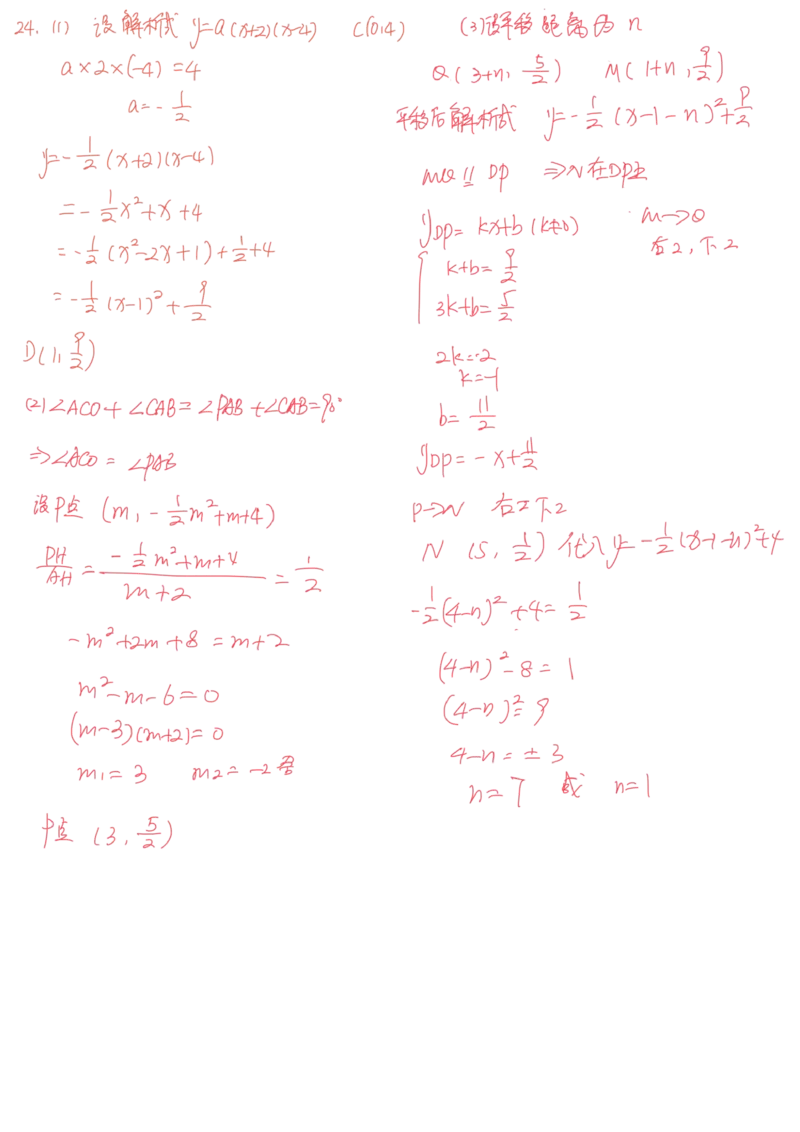 24. (1) 设解析式 y=a(x+2)(x-4) C(0,4)
a×2×(-4)=4
a=-1/2
y=-1/2(x+2)(x-4)
=-1/2x²+x+4
=-1/2(x²-2x+1)+1/2+4
=-1/2(x-1)²+9/2
D(1,9/2)
(2)∠ACO+∠CAB=∠PAB+∠CAB=90°
⇒∠ACO=∠PAB
设P点 (m,-1/2m²+m+4)
PH/AH=(-1/2m²+m+4)/(m+2)=1/2
-m²+2m+8=m+2
m²-m-6=0
(m-3)(m+2)=0
m₁=3 m₂=-2舍
P点 (3,5/2)
(3)设平移距离为n
Q(3+n,5/2) M(1+n,9/2)
平移后解析式 y=-1/2(x-1-n)²+9/2
MQ∥DP ⇒N在DP上
y_DP=kx+b(k≠0) M→Q
右2,下2
{k+b=9/2
3k+b=5/2
2k=-2
k=-1
b=11/2
y_DP=-x+11/2
P→N 右2下2
N (5,1/2) 代入y=-1/2(x-1-n)²+4
-1/2(4-n)²+4=1/2
(4-n)²-8=1
(4-n)²=9
4-n=±3
n=7 或 n=1